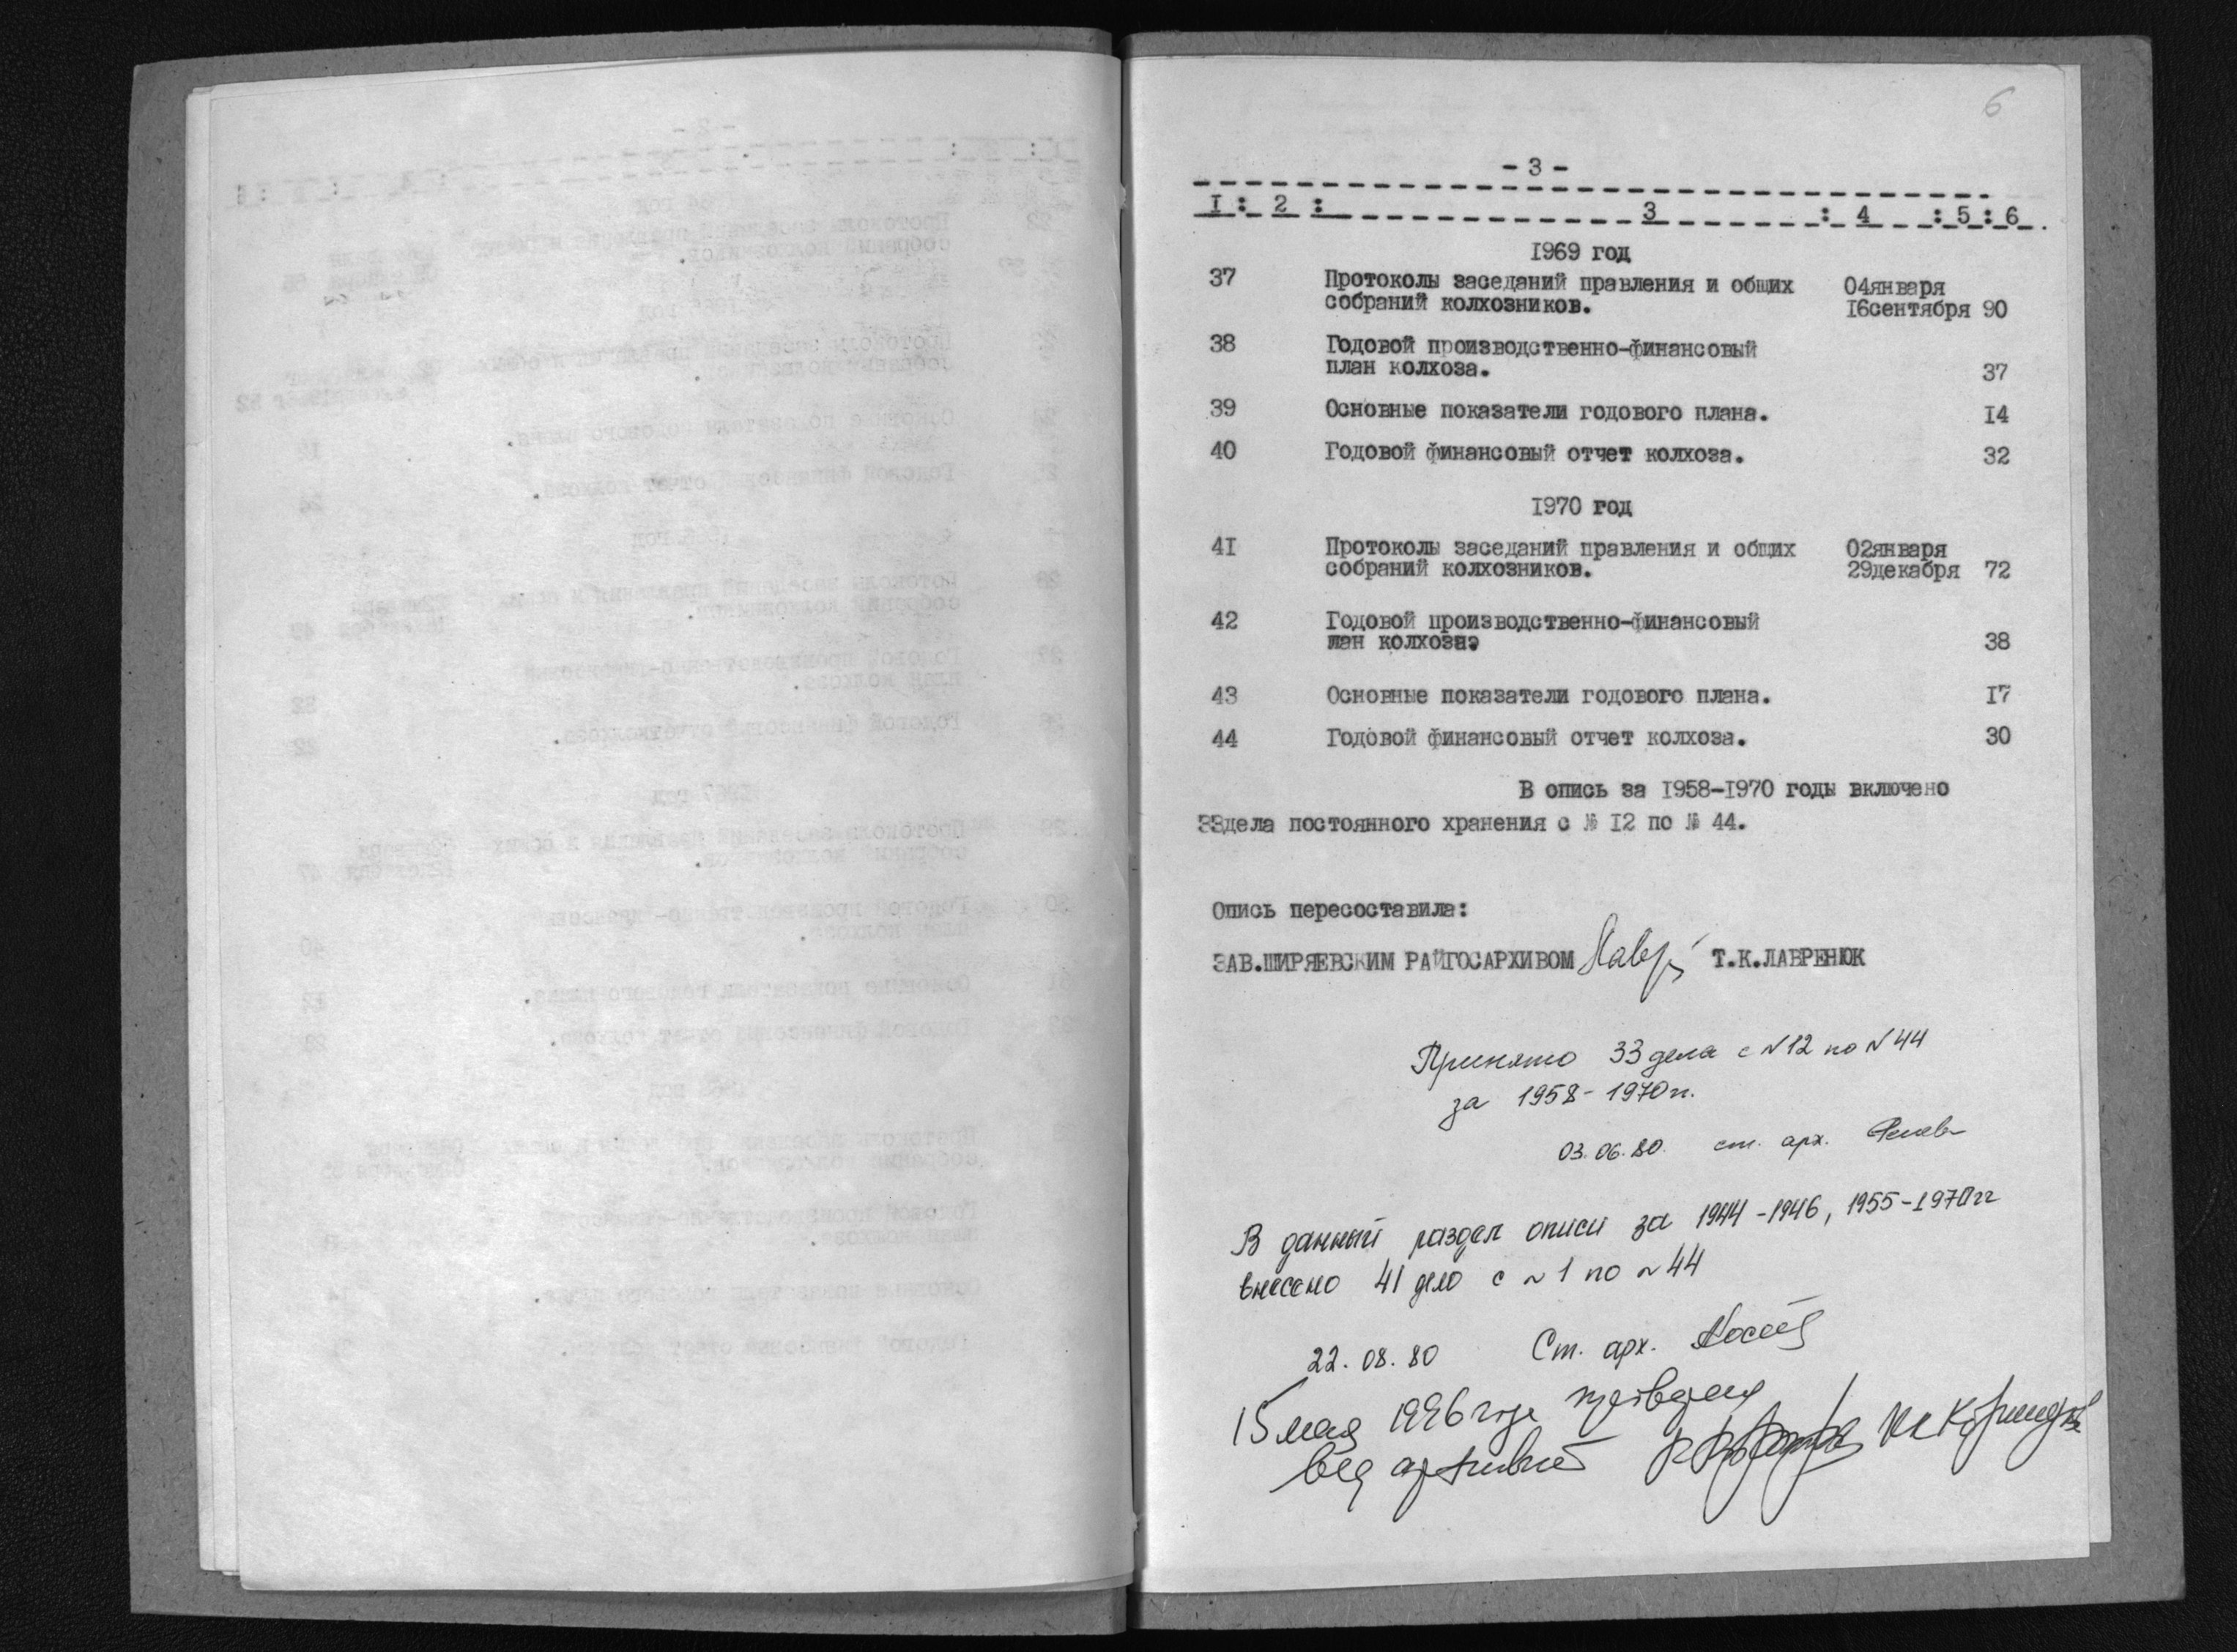 6
- 3 -
I : 2 : 3 : 4 : 5 : 6
I969 год
37 Протоколы заседаний правления и общих 04января
собраний колхозников. I6сентября 90
38 Годовой производственно-финансовый
план колхоза. 37
39 Основные показатели годового плана. I4
40 Годовой финансовый отчет колхоза. 32
I970 год
4I Протоколы заседаний правления и общих 02января
собраний колхозников. 29декабря 72
42 Годовой производственно-финансовый
лан колхоза. 38
43 Основные показатели годового плана. I7
44 Годовой финансовый отчет колхоза. 30
В опись за I958-I970 годы включено
33дела постоянного хранения с № I2 по № 44.
Опись пересоставила:
ЗАВ.ШИРЯЕВСКИМ РАЙГОСАРХИВОМ Т.К.ЛАВРЕНЮК
Принято 33 дела с N12 по N44
за 1958-1970гг.
03.06.80. ст. арх.
В данный раздел описи за 1944-1946, 1955-1970гг
внесено 41 дело с N1 по N44
22.08.80 Ст. арх.
15 мая 1996 года
вед архивист